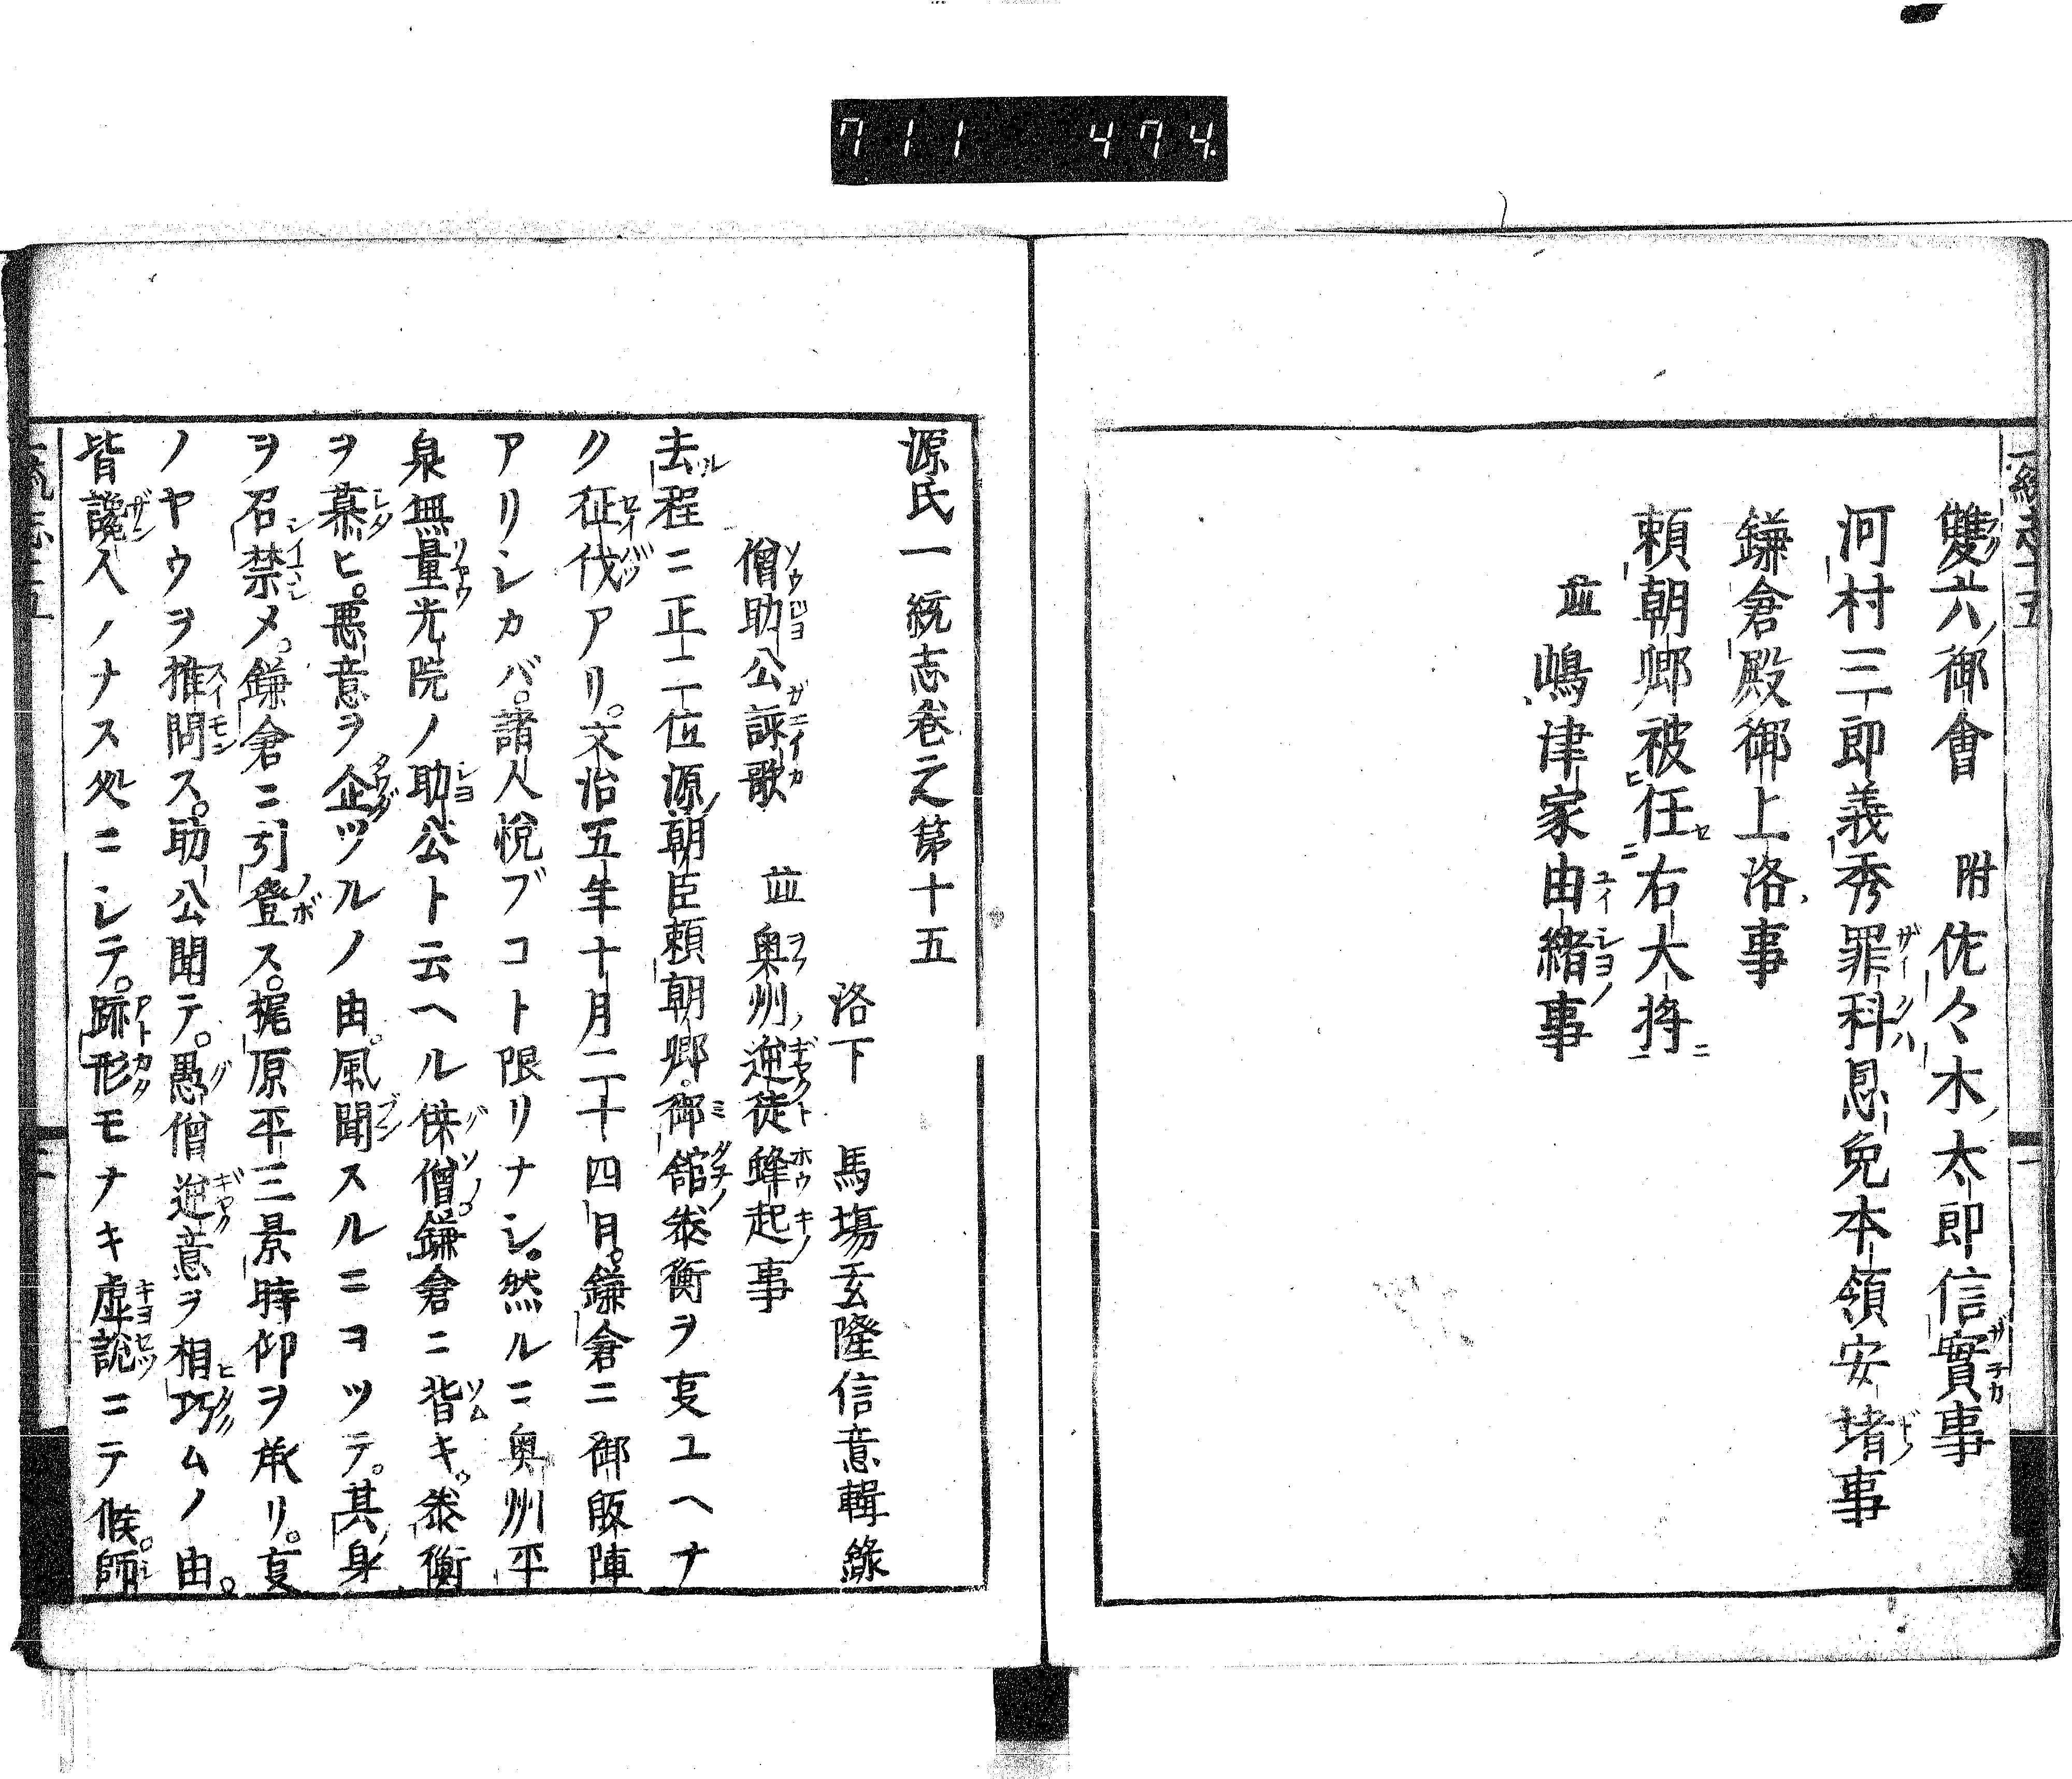 711 474
雙六御會 附 佐々木太郎信實事
河村三郎義秀罪科恩免本領安堵事
鎌倉殿御上洛事
頼朝卿被任右大将
並 嶋津家由緒事
源氏一統志巻之第十五
洛下 馬塲玄隆信意輯錄
僧助公詠歌 並 奥州逆徒蜂起事
去程ニ正二位源朝臣頼朝卿御舘泰衡ヲ叓ユヘナ
ク征伐アリ。文治五年十月二十四日。鎌倉ニ御皈陣
アリシカバ。諸人悦ブコト限リナシ。然ルニ奥州平
泉無量光院ノ助公ト云ヘル僧鎌倉ニ背キ泰衡
ヲ慕ヒ。悪意ヲ企ツルノ由。風聞スルニヨツテ。其身
ヲ召禁メ。鎌倉ニ引登ス。梶原平三景時仰ヲ承リ。叓
ノヤウヲ推問ス。助公聞テ。愚僧逆意ヲ相巧ムノ由。
皆讒人ノナス処ニシテ。跡形モナキ虚説ニテ候師